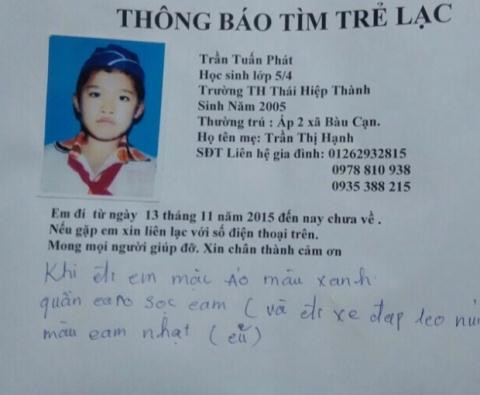 THÔNG BÁO TÌM TRẺ LẠC
Trần Tuấn Phát
Học sinh lớp 5/4
Trường TH Thái Hiệp Thành
Sinh Năm 2005
Thường trú : Ấp 2 xã Bàu Cạn.
Họ tên mẹ: Trần Thị Hạnh
SĐT Liên hệ gia đình: 01262932815
0978 810 938
0935 388 215
Em đi từ ngày 13 tháng 11 năm 2015 đến nay chưa về .
Nếu gặp em xin liên lạc với số điện thoại trên.
Mong mọi người giúp đỡ. Xin chân thành cảm ơn
Khi đi em mặc áo màu xanh
quần caro sọc cam ( và đi xe đạp leo núi
màu cam nhạt (cũ)